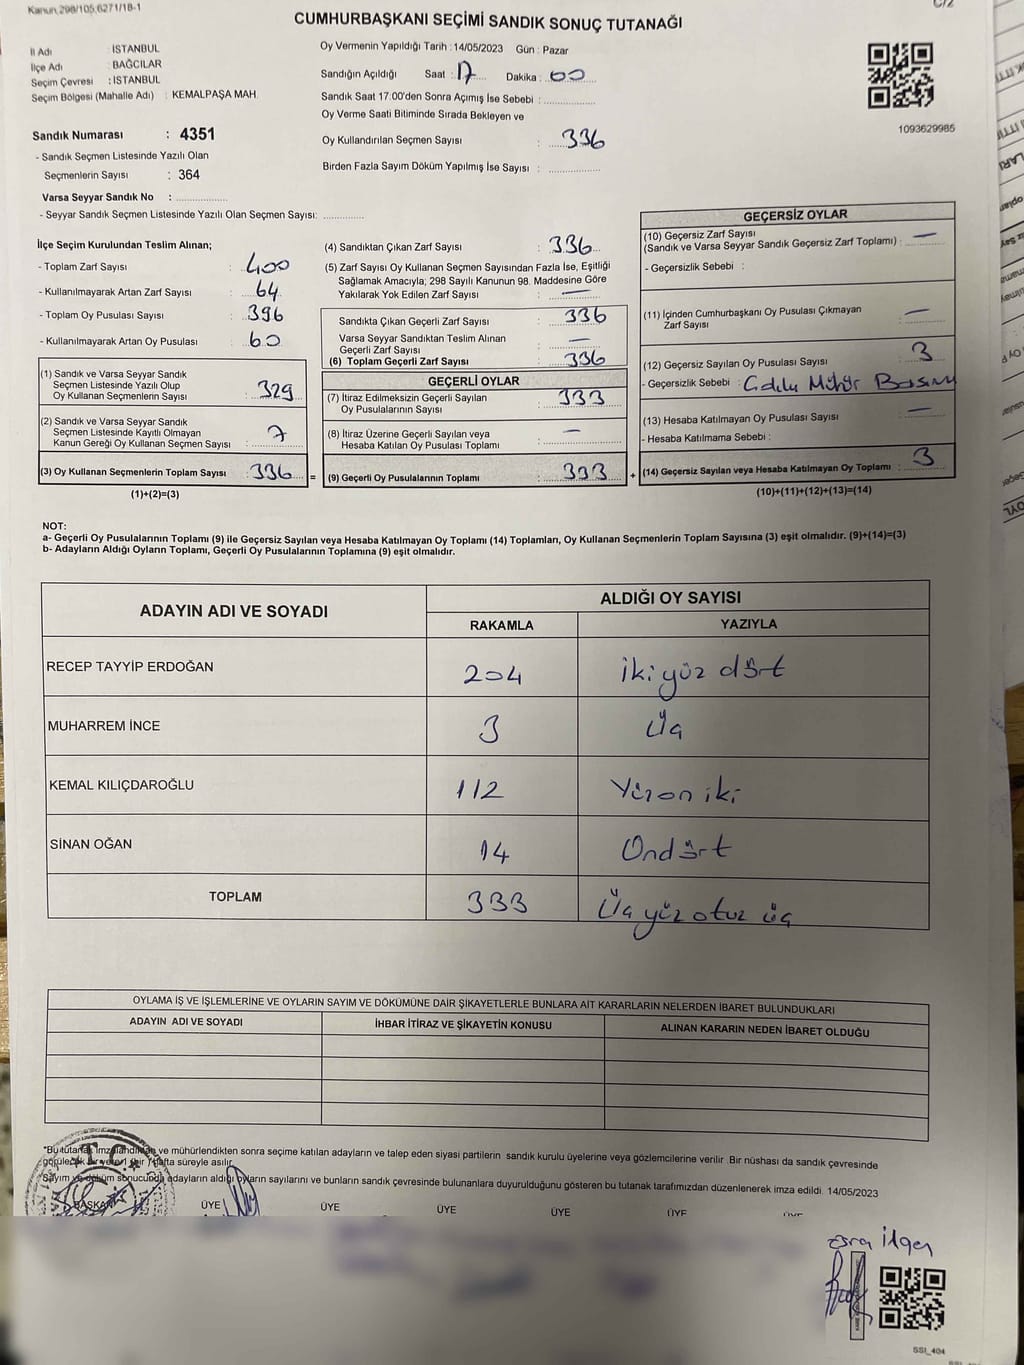 Kanun,298/105,6271/18-1
C/2
CUMHURBAŞKANI SEÇİMİ SANDIK SONUÇ TUTANAĞI
İl Adı : İSTANBUL
İlçe Adı : BAĞCILAR
Seçim Çevresi : İSTANBUL
Seçim Bölgesi (Mahalle Adı) : KEMALPAŞA MAH.
Sandık Numarası : 4351
- Sandık Seçmen Listesinde Yazılı Olan
Seçmenlerin Sayısı : 364
Varsa Seyyar Sandık No : ..................
- Seyyar Sandık Seçmen Listesinde Yazılı Olan Seçmen Sayısı: ..............
Oy Vermenin Yapıldığı Tarih : 14/05/2023 Gün : Pazar
Sandığın Açıldığı Saat : 17 Dakika : 00
Sandık Saat 17:00'den Sonra Açımış İse Sebebi : ..................
Oy Verme Saati Bitiminde Sırada Bekleyen ve
Oy Kullandırılan Seçmen Sayısı : 336
Birden Fazla Sayım Döküm Yapılmış İse Sayısı : ..................
1093629985
İlçe Seçim Kurulundan Teslim Alınan;
- Toplam Zarf Sayısı : 400
- Kullanılmayarak Artan Zarf Sayısı : 64
- Toplam Oy Pusulası Sayısı : 396
- Kullanılmayarak Artan Oy Pusulası : 60
(1) Sandık ve Varsa Seyyar Sandık
Seçmen Listesinde Yazılı Olup
Oy Kullanan Seçmenlerin Sayısı : 329
(2) Sandık ve Varsa Seyyar Sandık
Seçmen Listesinde Kayıtlı Olmayan
Kanun Gereği Oy Kullanan Seçmen Sayısı : 7
(3) Oy Kullanan Seçmenlerin Toplam Sayısı : 336 =
(1)+(2)=(3)
(4) Sandıktan Çıkan Zarf Sayısı : 336
(5) Zarf Sayısı Oy Kullanan Seçmen Sayısından Fazla İse, Eşitliği
Sağlamak Amacıyla; 298 Sayılı Kanunun 98. Maddesine Göre
Yakılarak Yok Edilen Zarf Sayısı : —
Sandıkta Çıkan Geçerli Zarf Sayısı : 336
Varsa Seyyar Sandıktan Teslim Alınan
Geçerli Zarf Sayısı : —
(6) Toplam Geçerli Zarf Sayısı : 336
GEÇERLİ OYLAR
(7) İtiraz Edilmeksizin Geçerli Sayılan
Oy Pusulalarının Sayısı : 333
(8) İtiraz Üzerine Geçerli Sayılan veya
Hesaba Katılan Oy Pusulası Toplamı : —
(9) Geçerli Oy Pusulalarının Toplamı : 333 +
GEÇERSİZ OYLAR
(10) Geçersiz Zarf Sayısı
(Sandık ve Varsa Seyyar Sandık Geçersiz Zarf Toplamı) : —
- Geçersizlik Sebebi :
(11) İçinden Cumhurbaşkanı Oy Pusulası Çıkmayan
Zarf Sayısı : —
(12) Geçersiz Sayılan Oy Pusulası Sayısı : 3
- Geçersizlik Sebebi : Mühür Basımı
(13) Hesaba Katılmayan Oy Pusulası Sayısı : —
- Hesaba Katılmama Sebebi :
(14) Geçersiz Sayılan veya Hesaba Katılmayan Oy Toplamı : 3
(10)+(11)+(12)+(13)=(14)
NOT:
a- Geçerli Oy Pusulalarının Toplamı (9) ile Geçersiz Sayılan veya Hesaba Katılmayan Oy Toplamı (14) Toplamları, Oy Kullanan Seçmenlerin Toplam Sayısına (3) eşit olmalıdır. (9)+(14)=(3)
b- Adayların Aldığı Oyların Toplamı, Geçerli Oy Pusulalarının Toplamına (9) eşit olmalıdır.
ADAYIN ADI VE SOYADI ALDIĞI OY SAYISI
RAKAMLA YAZIYLA
RECEP TAYYİP ERDOĞAN 204 iki yüz dört
MUHARREM İNCE 3 Üç
KEMAL KILIÇDAROĞLU 112 Yüzon iki
SİNAN OĞAN 14 Ondört
TOPLAM 333 Üç yüz otuz üç
OYLAMA İŞ VE İŞLEMLERİNE VE OYLARIN SAYIM VE DÖKÜMÜNE DAİR ŞİKAYETLERLE BUNLARA AİT KARARLARIN NELERDEN İBARET BULUNDUKLARI
ADAYIN ADI VE SOYADI İHBAR İTİRAZ VE ŞİKAYETİN KONUSU ALINAN KARARIN NEDEN İBARET OLDUĞU
"Bu tutanak imzalandıktan ve mühürlendikten sonra seçime katılan adayların ve talep eden siyasi partilerin sandık kurulu üyelerine veya gözlemcilerine verilir .Bir nüshası da sandık çevresinde
görülecek bir yere 1 (bir ) hafta süreyle asılır.
"Sayım ve döküm sonucunda adayların aldığı oyların sayılarını ve bunların sandık çevresinde bulunanlara duyurulduğunu gösteren bu tutanak tarafımızdan düzenlenerek imza edildi. 14/05/2023
T.C.
BAŞKAN ÜYE ÜYE ÜYE ÜYE ÜYE ÜYE
Esra İlger
SSI_404